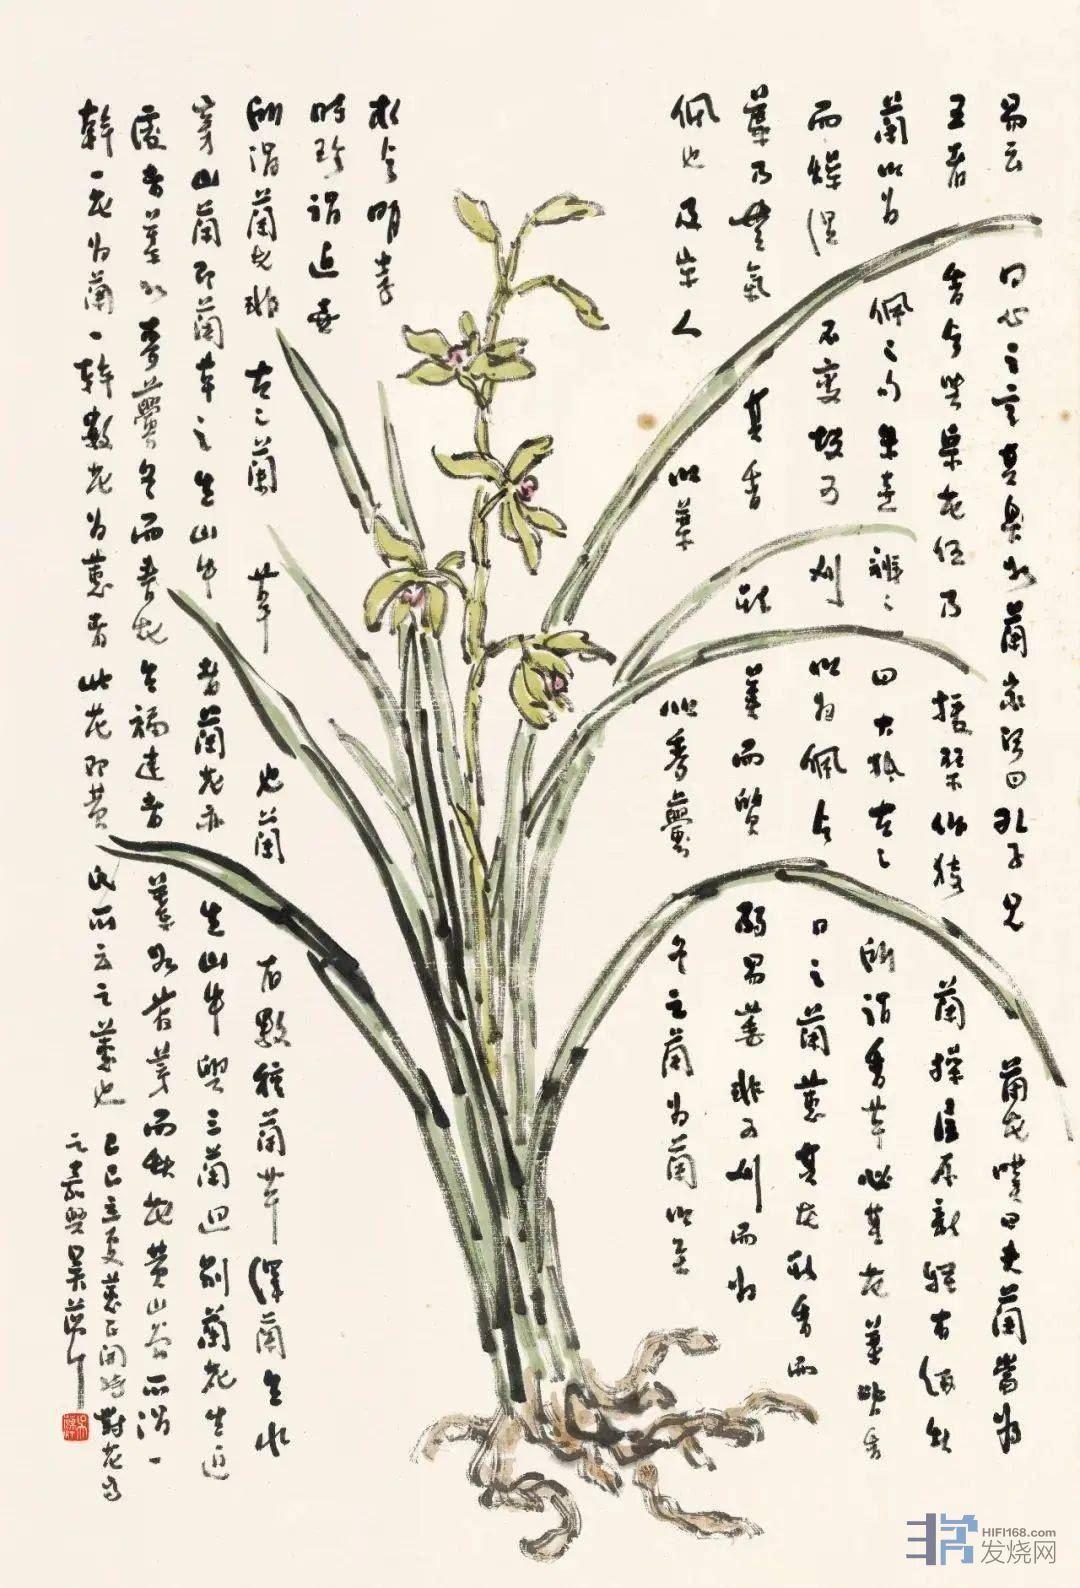 易云同心之言其臭如蘭家語曰孔子見蘭花嘆曰夫蘭當為
王者香今與眾花伍乃援琴作猗蘭操屈原離騷有紉秋
蘭以為佩之句朱熹辨之曰大抵古之所謂香草必其花葉皆香
而燥濕不變故可刈以為佩今日之蘭蕙其花雖香而
葉乃無氣其香雖美而質弱易萎非可刈而為
佩也及宋人以葉似麥虋冬之蘭為蘭以至
於今明李
時珍謂近世
所謂蘭花非古之蘭草也蘭有數種蘭草澤蘭生水
旁山蘭即蘭草之生山中者蘭花亦生山中與三蘭迥別蘭花生近
處者葉如麥虋冬而春花生福建者葉如菅茅而秋花黃山谷所謂一
幹一花為蘭一幹數花為蕙者此花即黃氏所云之蕙也
己巳立夏蕙正開時對花寫
之嘉興吳藕汀
HIFI168.com
发烧网